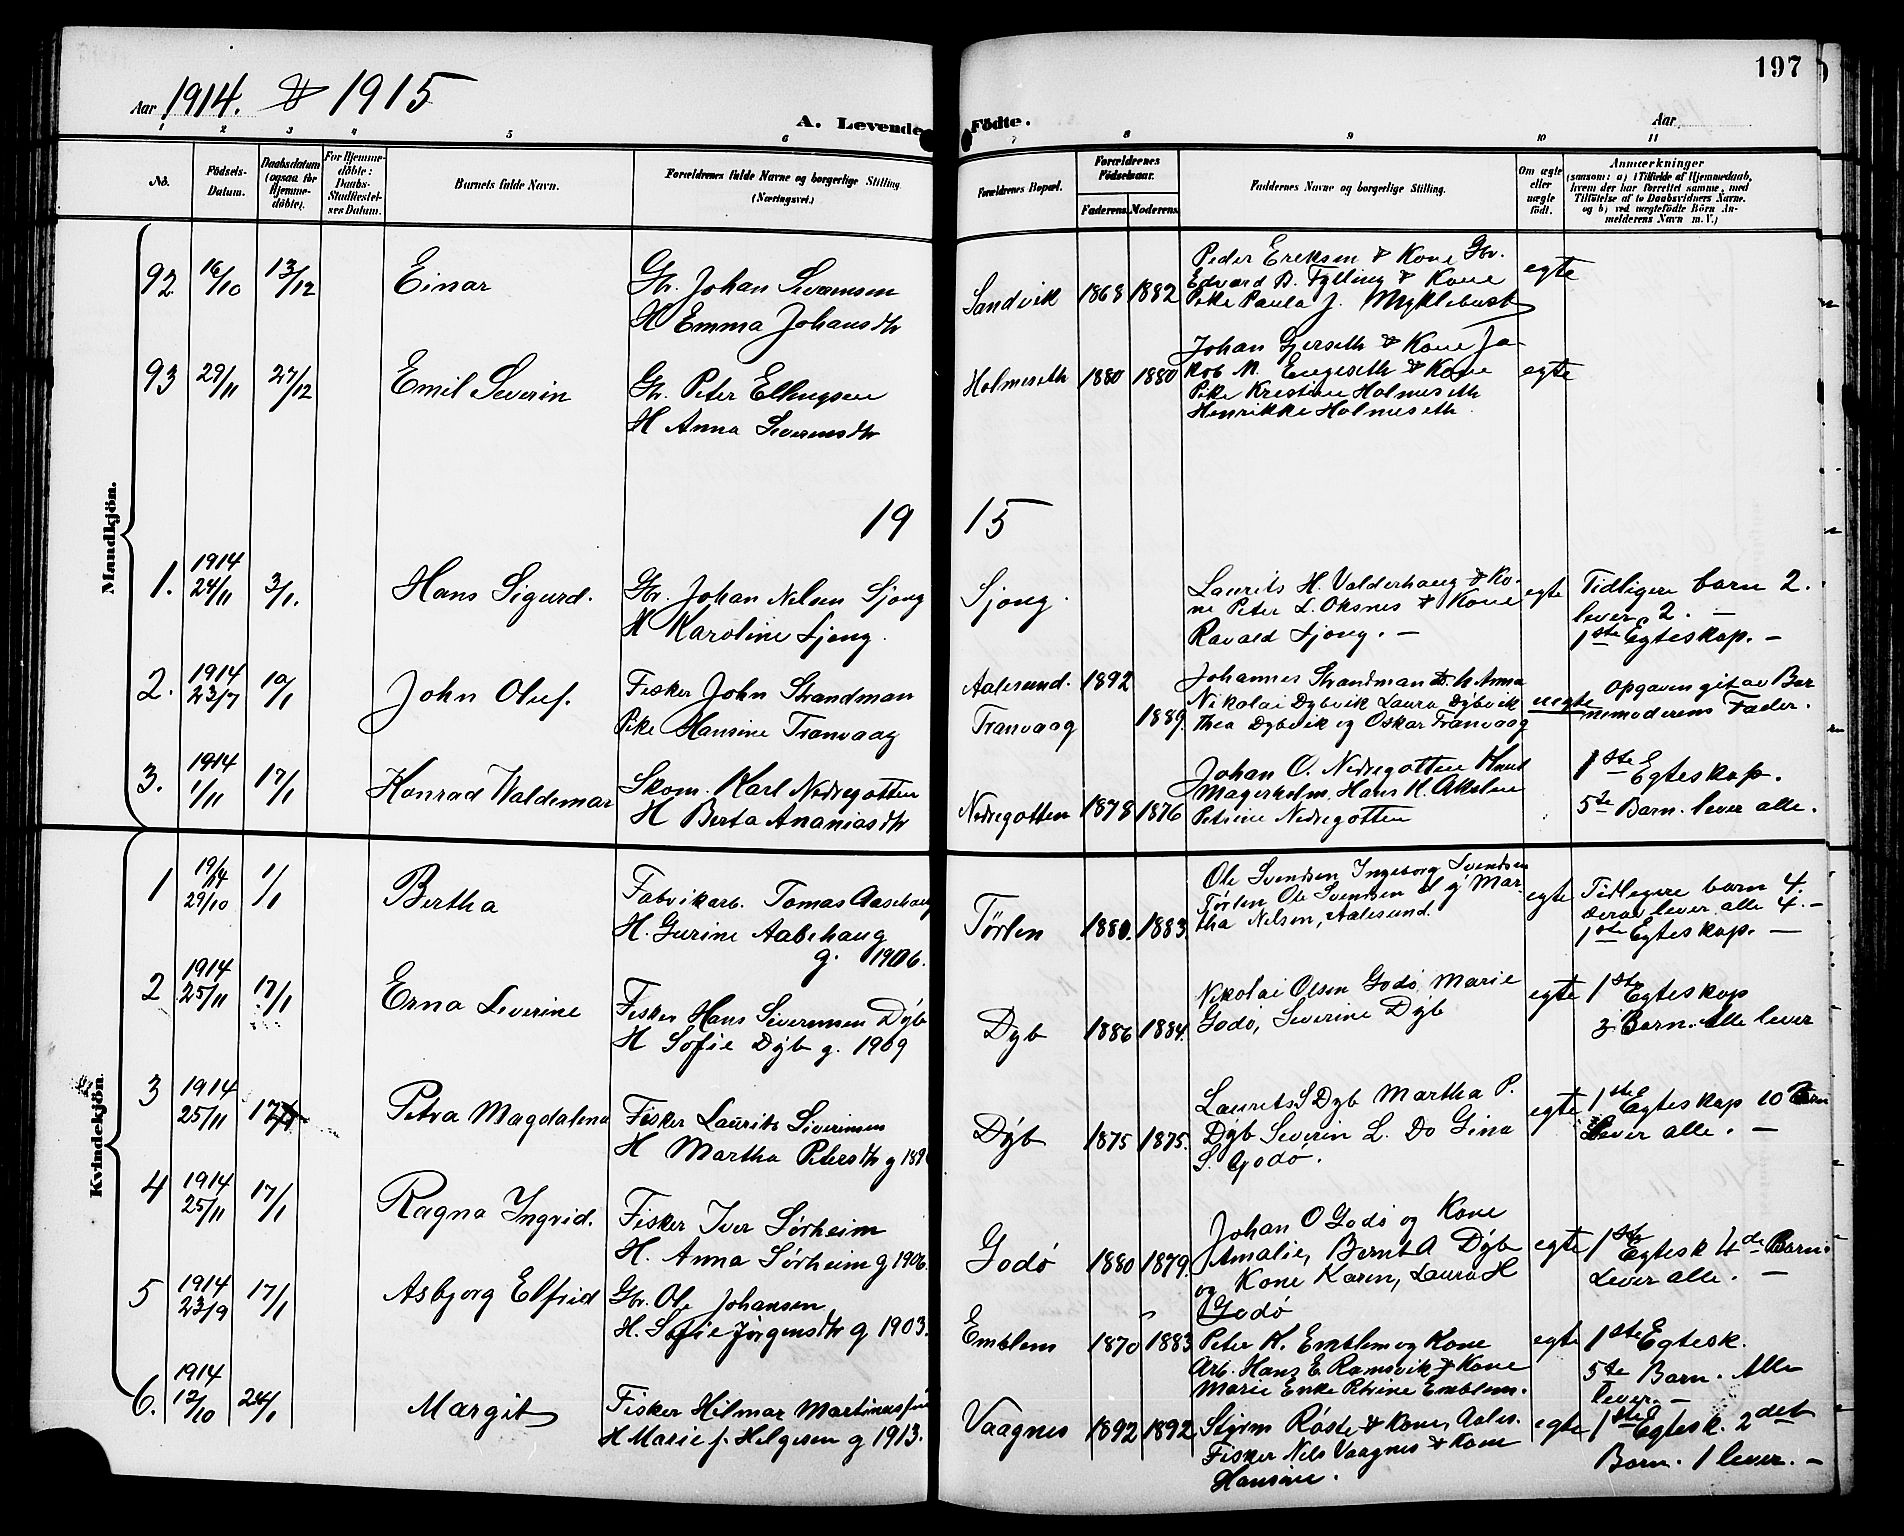 197
Aar 1914. & 1915
A. Levende Födte.
Aar
1 2 3 4 5 6 7 8 9 10 11
No.
Födsels-Datum.
Daabsdatum (ogsaa for Hjemme-döbte).
For Hjemme-döbte: Daabs-Stadfæstel-ses Datum.
Barnets fulde Navn.
Forældrenes fulde Navne og borgerlige Stilling (Næringsvei.)
Forældrenes Bopæl.
Forældrenes Födselsaar.
Faderens. Moderens.
Faddernes Navne og borgerlige Stilling.
Om ægte eller uægte födt.
Anmærkninger
(saasom: a) i Tilfælde af Hjemmedaab,
hvem der har forrettet samme, med
Tilföielse af to Daabsvidners Navne.
og b) ved uægtefödte Börn An-
melderens Navn m. V.)
Mandkjön.
92 16/10 13/12 Einar
Gbr. Johan Sivertsen
H Emma Johansdtr
Sandvik 1868 1882
Peder Eriksen & Kone Gbr.
Edvard D. Fylling & Kone
Pike Paula J. Myklebust
egte
93 29/11 27/12 Emil Severin
Gbr. Peter Ellingsen
H Anna Severinsdtr
Holmeseth 1880 1880
Johan Gjerseth & Kone Ja-
kob M. Engeseth & Kone
Pike Kristine Holmeseth
Henrikke Holmeseth
egte
19 15
1. 1914 24/11 3/1. Hans Sigurd.
Gbr. Johan Nelsen Sjong
H Karoline Sjong.
Sjong.
Laurits H. Valderhaug & Ko-
ne Peter L. Oksnes & Kone
Ravald Sjong. -
egte
Tidligere barn 2.
lever 2. -
1ste Egteskap. -
2. 1914 23/7 10/1 John Oluf.
Fisker John Strandman
Pike Hansine Tranvaag
Aalesund. 1892
Tranvaag 1889.
Johannes Strandman & h. Anna
Nikolai Dybvik Laura Dybvik
Thea Dybvik og Oskar Tranvaag
uegte
Opgaven git av Bar
nemoderens Fader.
3. 1914 1/11 17/1 Konrad Waldemar
Skom. Karl Nedregotten
H Berta Ananiasdtr
Nedregotten 1878 1876
Johan O. Nedregotten Knut
Magerholm, Hans K. Akslen
Petrine Nedregotten
1ste Egteskap.
5te Barn. lever alle.
Kvindekjön
1 1914 29/10 1/1 Bertha
Fabrikarb. Tomas Aasehaug
H. Gurine Aasehaug
g. 1906.
Törlen 1880. 1883.
Ole Svendsen Ingeborg Svendsen
Törlen Ole Svendsen d. y. Mar-
tha Nelsen, Aalesund.
egte
Tidligere barn 4.
derav lever alle 4. -
1ste Egteskap. -
2 1914 25/11 17/1 Erna Severine
Fisker Hans Severinsen Dyb
H Sofie Dyb g. 1909
Dyb 1886 1884.
Nikolai Olsen Godö, Marie
Godö, Severine Dyb
egte
1ste Egteskap
3. Barn. Alle lever
3 1914 25/11 17/1 Petra Magdalena
Fisker Laurits Severinsen
H Martha Petersdtr g 189
Dyb 1875 1875.
Laurits S Dyb Martha P.
Dyb Severin L. Do Gina
S. Godö.
egte
1ste Egteskap 10 Barn
Lever alle. -
4 1914 25/11 17/1 Ragna Ingrid.
Fisker Iver Sörheim
H. Anna Sörheim g 1906.
Godö 1880 1879.
Johan O Godö og Kone
Amalie, Bernt A Dyb
og Kone Karen, Laura H
Godö
egte
1ste Egtesk 4de Barn.
Lever alle. -
5 1914 23/9 17/1 Asbjorg Elfrid
Gbr. Ole Johansen
H. Sofie Jörgensdtr g 1903.
Emblem 1870 1883
Peter K. Emblem og Kone
Arb. Hans E Ramsvik & Kone
Marie Enke Petrine Emblem.
egte
1ste Egtesk.
5te Barn. Alle
lever. -
6. 1914 12/10 24/1 Margit
Fisker Hilmar Martinussen
H Marie f. Helgesen g 1913.
Vaagnes 1892 1892
Styrm Röste & Kone, Aales.
Fisker Nels Vaagnes & Kone
Hansine.
egte
1ste Egtesk. 2det
Barn. 1 lever. -